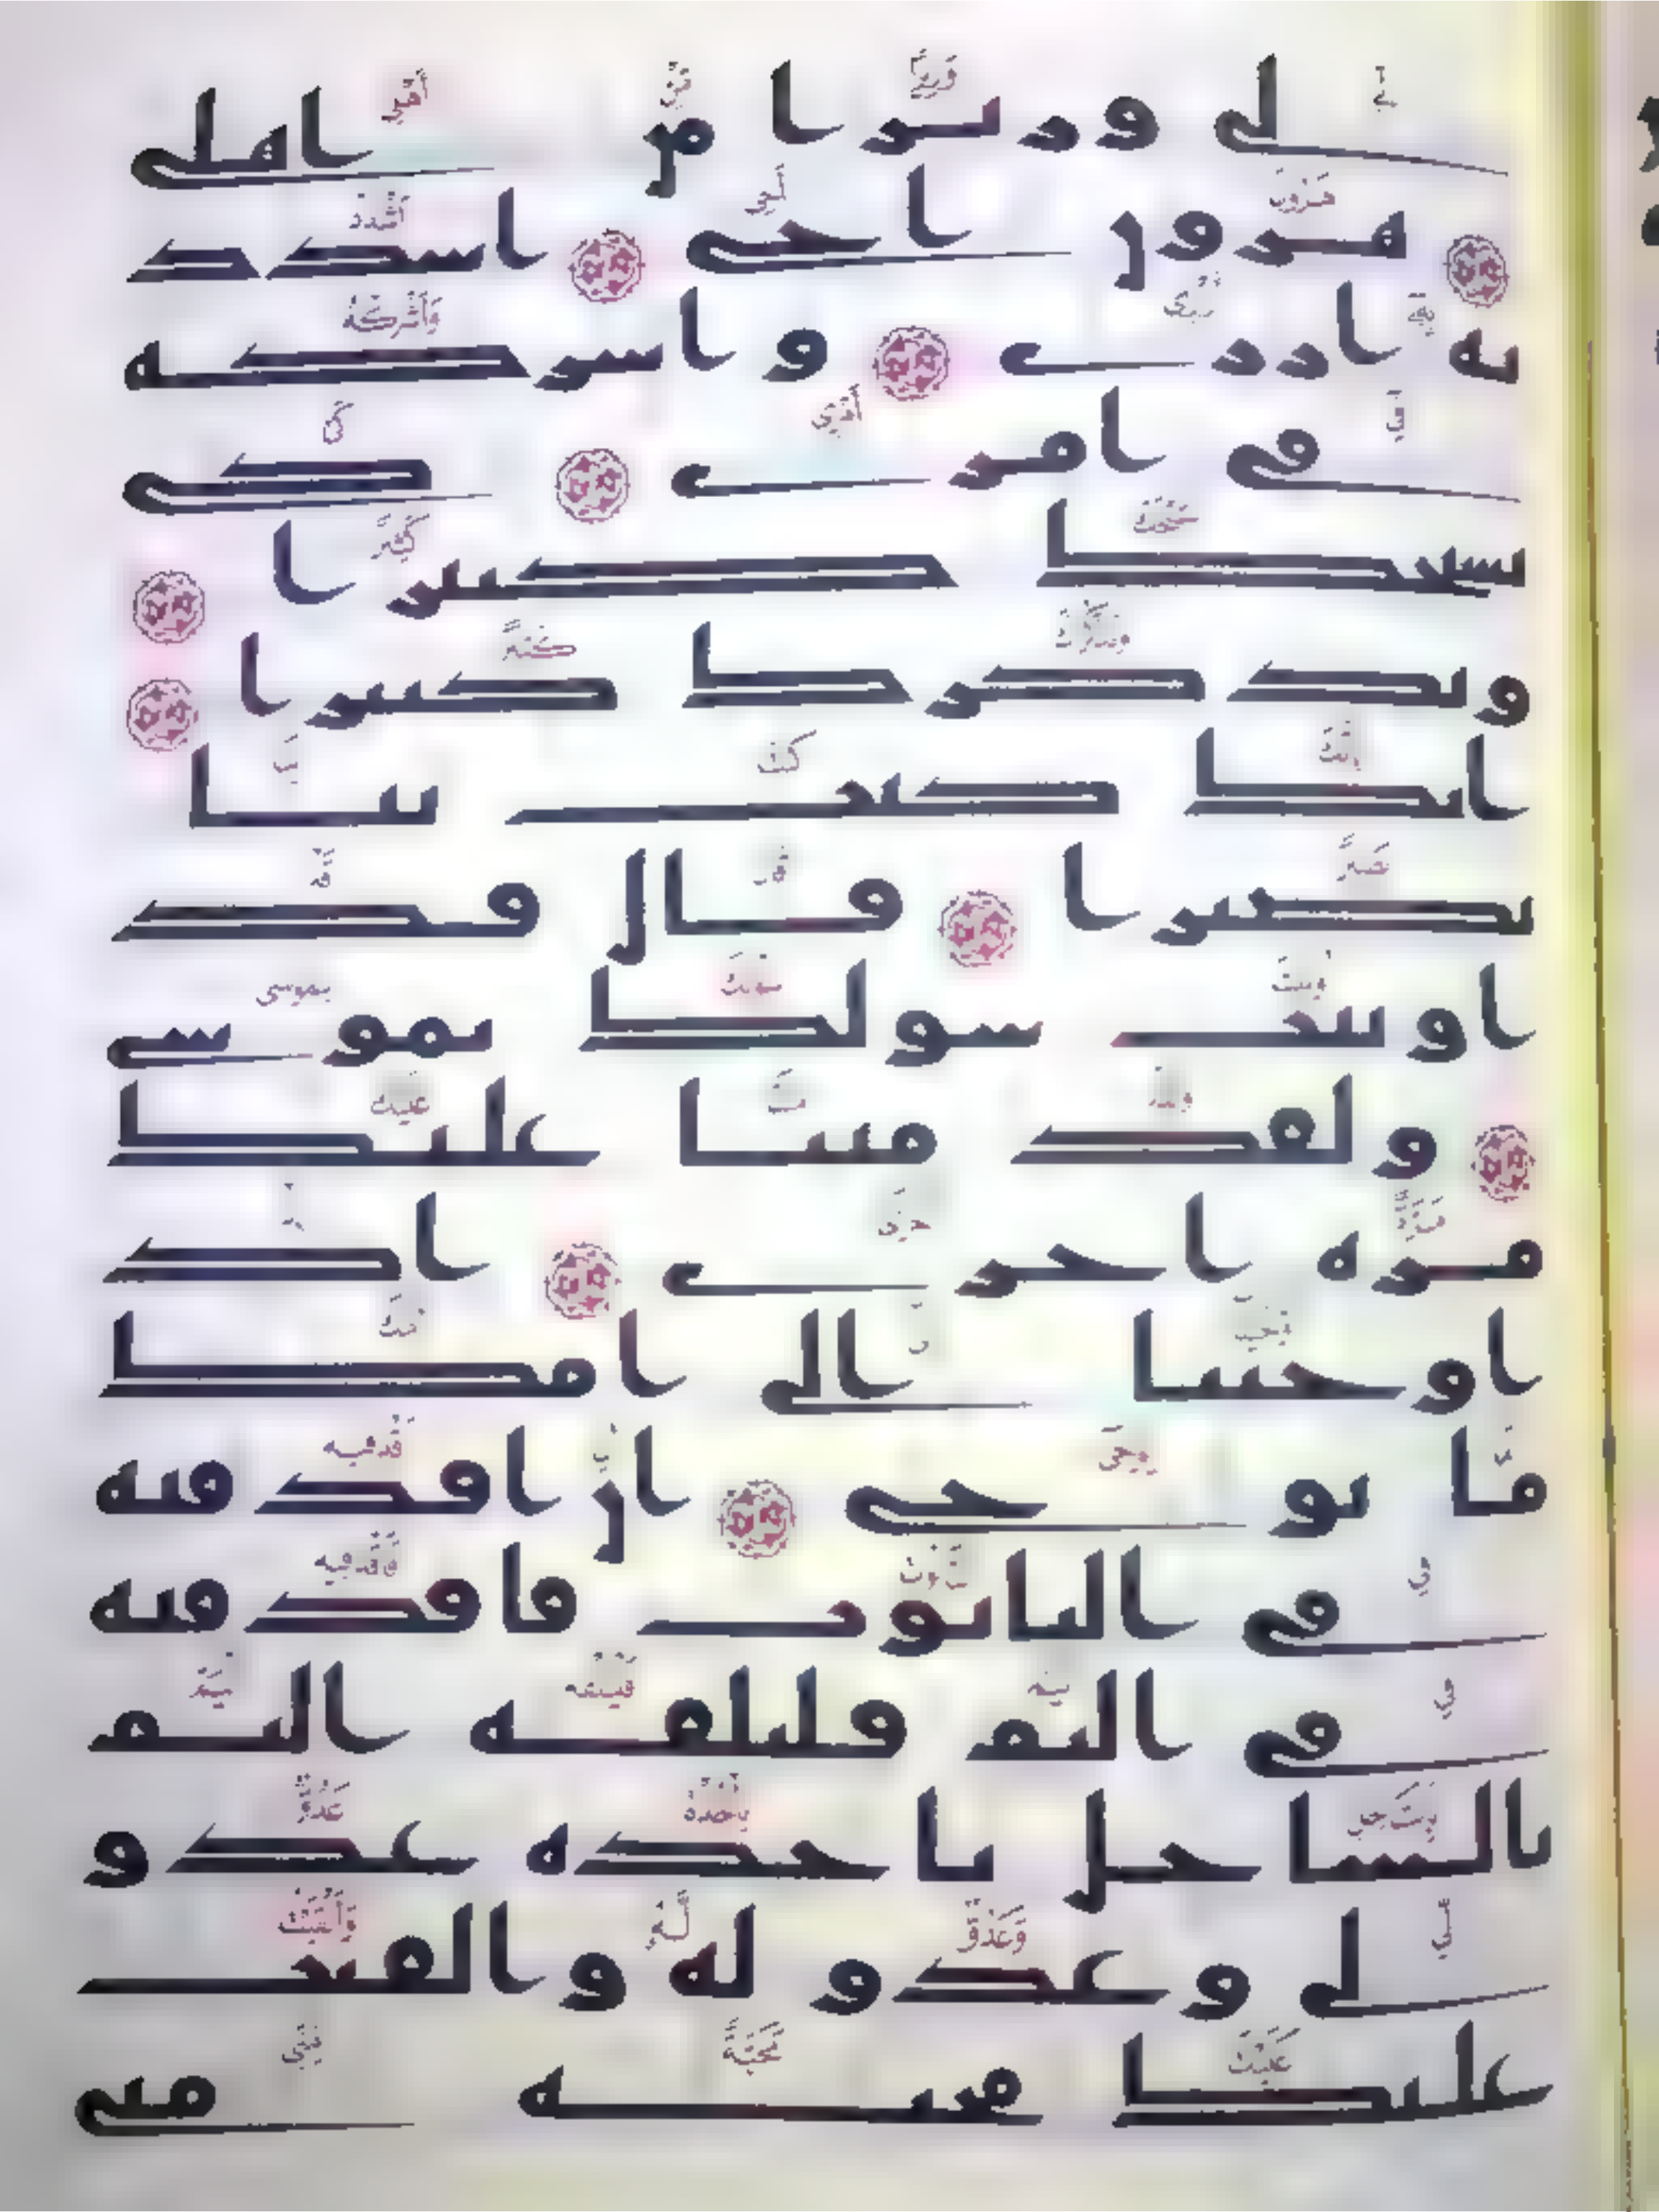 لي وزيرا من اهلي
هرون اخي اشدد
به ازري واشركه
في امري كي
نسبحك كثيرا
ونذكرك كثيرا
انك كنت بنا
بصيرا قال قد
اوتيت سولك يموسى
ولقد مننا عليك
مرة اخرى اذ
اوحينا الى امك
ما يوحى ان اقذفيه
في التابوت فاقذفيه
في اليم فليلقه اليم
بالساحل ياخذه عدو
لي وعدو له والقيت
عليك محبة مني